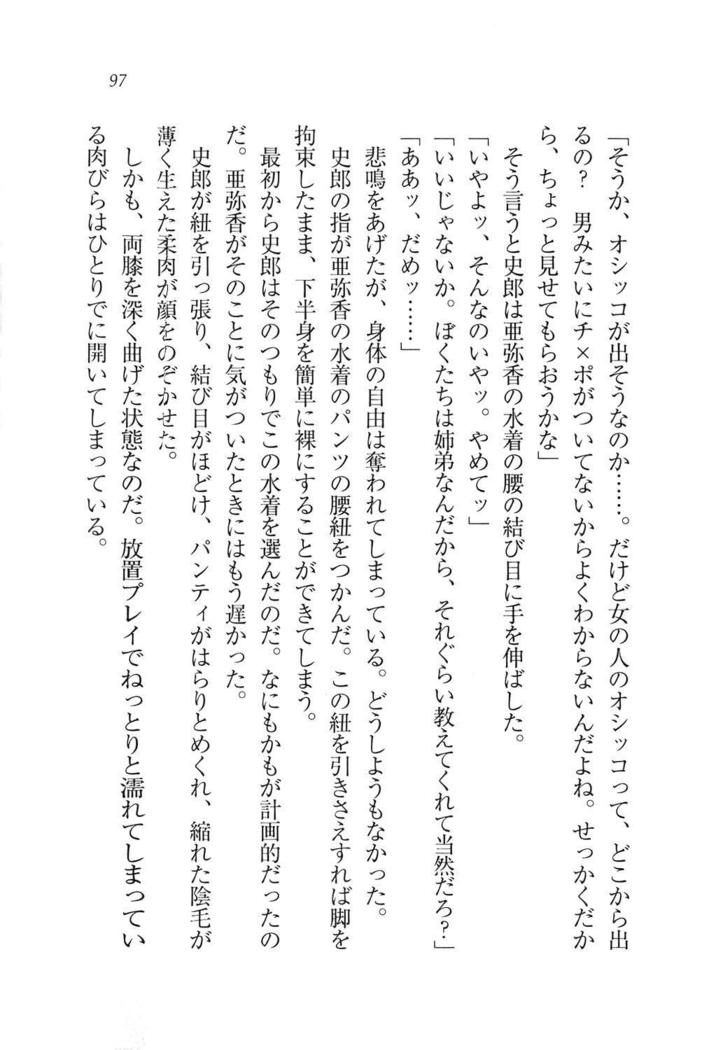 97
「そうか、オシッコが出そうなのか……。だけど女の人のオシッコって、どこから出
るの？　男みたいにチ×ポがついてないからよくわからないんだよね。せっかくだか
ら、ちょっと見せてもらおうかな」
そう言うと史郎は亜弥香の水着の腰の結び目に手を伸ばした。
「いやよッ、そんなのいやッ。やめてッ」
「いいじゃないか。ぼくたちは姉弟なんだから、それぐらい教えてくれて当然だろ？」
「ああッ、だめッ……」
悲鳴をあげたが、身体の自由は奪われてしまっている。どうしようもなかった。
史郎の指が亜弥香の水着のパンツの腰紐をつかんだ。この紐を引きさえすれば脚を
拘束したまま、下半身を簡単に裸にすることができてしまう。
最初から史郎はそのつもりでこの水着を選んだのだ。なにもかもが計画的だったの
だ。亜弥香がそのことに気がついたときにはもう遅かった。
史郎が紐を引っ張り、結び目がほどけ、パンティがはらりとめくれ、縮れた陰毛が
薄く生えた柔肉が顔をのぞかせた。
しかも、両膝を深く曲げた状態なのだ。放置プレイでねっとりと濡れてしまってい
る肉びらはひとりでに開いてしまっている。